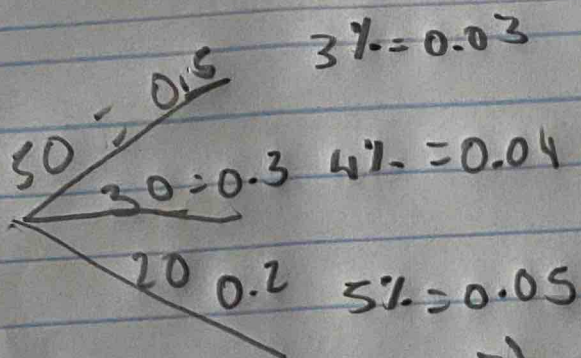 50 = 0.5 3% = 0.03
30 = 0.3 4% = 0.04
20 0.2 5% = 0.05